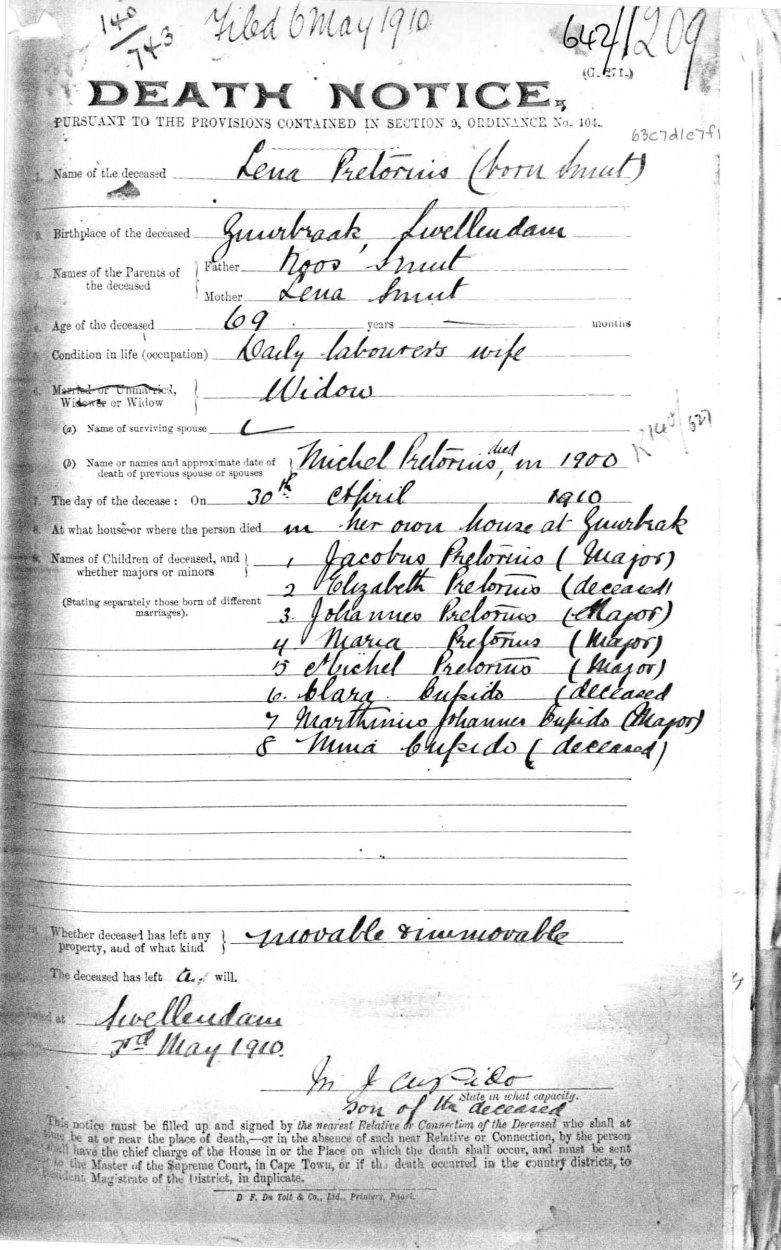 140
743
Filed 6 May 1910
642/1209
(G. 271.)
DEATH NOTICE,
PURSUANT TO THE PROVISIONS CONTAINED IN SECTION 9, ORDINANCE No. 104.
63c7d1e7f1
1. Name of the deceased Lena Pretorius (born Smut)
2. Birthplace of the deceased Zuurbraak, Swellendam
3. Names of the Parents of the deceased
Father Koos Smut
Mother Lena Smut
4. Age of the deceased 69 years — months
5. Condition in life (occupation) Daily labourer's wife
6. Married or Unmarried, Widower or Widow Widow
(a) Name of surviving spouse
K 140/627
(b) Name or names and approximate date of death of previous spouse or spouses Michel Pretorius, died in 1900
7. The day of the decease: On 30th April 1910
8. At what house or where the person died in her own house at Zuurbrak
9. Names of Children of deceased, and whether majors or minors
(Stating separately those born of different marriages).
1, Jacobus Pretorius (Major)
2 Elizabeth Pretorius (deceased)
3. Johannes Pretorius (Major)
4 Maria Pretorius (Major)
5 Michel Pretorius (Major)
6. Clara Cupido (deceased
7 Marthinus Johannes Cupido (Major)
8 Mina Cupido (deceased)
Whether deceased has left any property, and of what kind movable & immovable
The deceased has left a. will.
at Swellendam
3rd May 1910.
M J Cupido
State in what capacity.
son of the deceased
This notice must be filled up and signed by the nearest Relative or Connection of the Deceased who shall at
be at or near the place of death,—or in the absence of such near Relative or Connection, by the person
shall have the chief charge of the House in or the Place on which the death shall occur, and must be sent
to the Master of the Supreme Court, in Cape Town, or if the death occurred in the country districts, to
Resident Magistrate of the District, in duplicate.
D. F. Du Toit & Co., Ltd., Printers, Paarl.